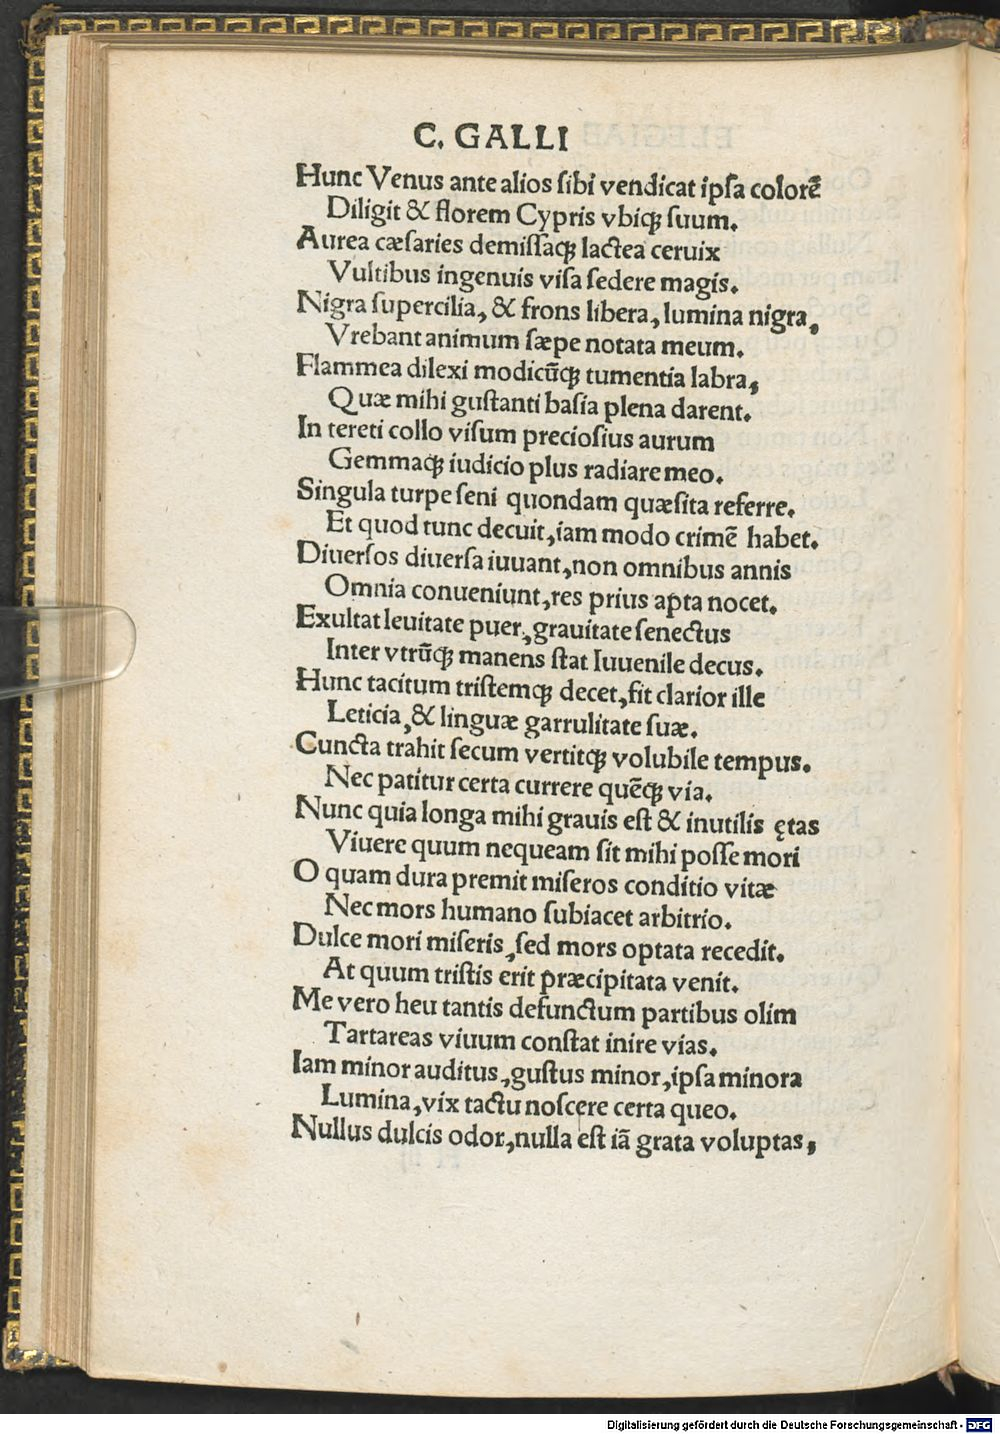 C. GALLI
Hunc Venus ante alios ſibi vendicat ipſa colorē
Diligit & florem Cypris vbiqꝫ ſuum.
Aurea cæſaries demiſſaqꝫ lactea ceruix
Vultibus ingenuis viſa ſedere magis.
Nigra ſupercilia, & frons libera, lumina nigra,
Vrebant animum ſæpe notata meum.
Flammea dilexi modicūqꝫ tumentia labra,
Quæ mihi guſtanti baſia plena darent.
In tereti collo viſum precioſius aurum
Gemmaqꝫ iudicio plus radiare meo.
Singula turpe ſeni quondam quæſita referre.
Et quod tunc decuit, iam modo crimē habet.
Diuerſos diuerſa iuuant, non omnibus annis
Omnia conueniunt, res prius apta nocet.
Exultat leuitate puer, grauitate ſenectus
Inter vtrūqꝫ manens ſtat Iuuenile decus.
Hunc tacitum triſtemqꝫ decet, fit clarior ille
Leticia, & linguæ garrulitate ſuæ.
Cuncta trahit ſecum vertitqꝫ volubile tempus.
Nec patitur certa currere quēqꝫ via.
Nunc quia longa mihi grauis eſt & inutilis ętas
Viuere quum nequeam ſit mihi poſſe mori
O quam dura premit miſeros conditio vitæ
Nec mors humano ſubiacet arbitrio.
Dulce mori miſeris, ſed mors optata recedit.
At quum triſtis erit præcipitata venit.
Me vero heu tantis defunctum partibus olim
Tartareas viuum conſtat inire vias.
Iam minor auditus, guſtus minor, ipſa minora
Lumina, vix tactu noſcere certa queo.
Nullus dulcis odor, nulla eſt iā grata voluptas,
Digitalisierung gefördert durch die Deutsche Forschungsgemeinschaft - DFG